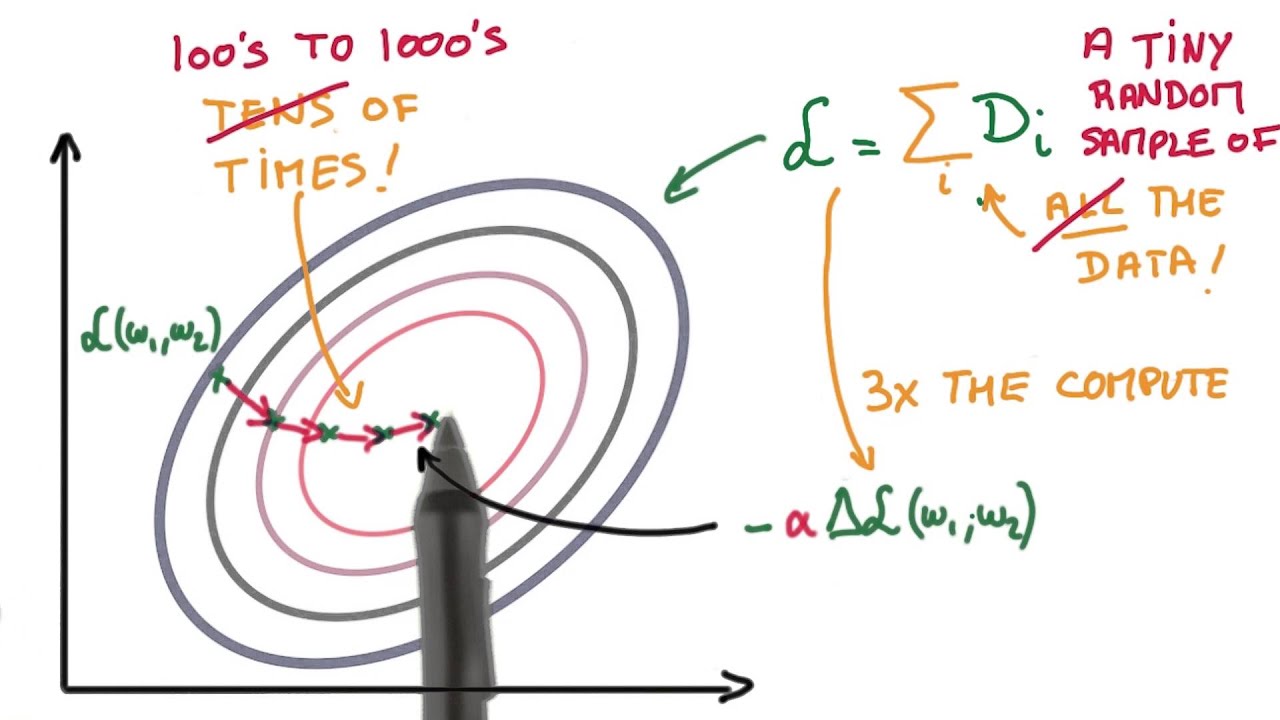 100'S TO 1000'S
TENS OF
TIMES!
ℒ(ω₁,ω₂)
ℒ = Σᵢ Dᵢ
A TINY
RANDOM
SAMPLE OF
ALL THE
DATA!
3X THE COMPUTE
-αΔℒ(ω₁,ω₂)